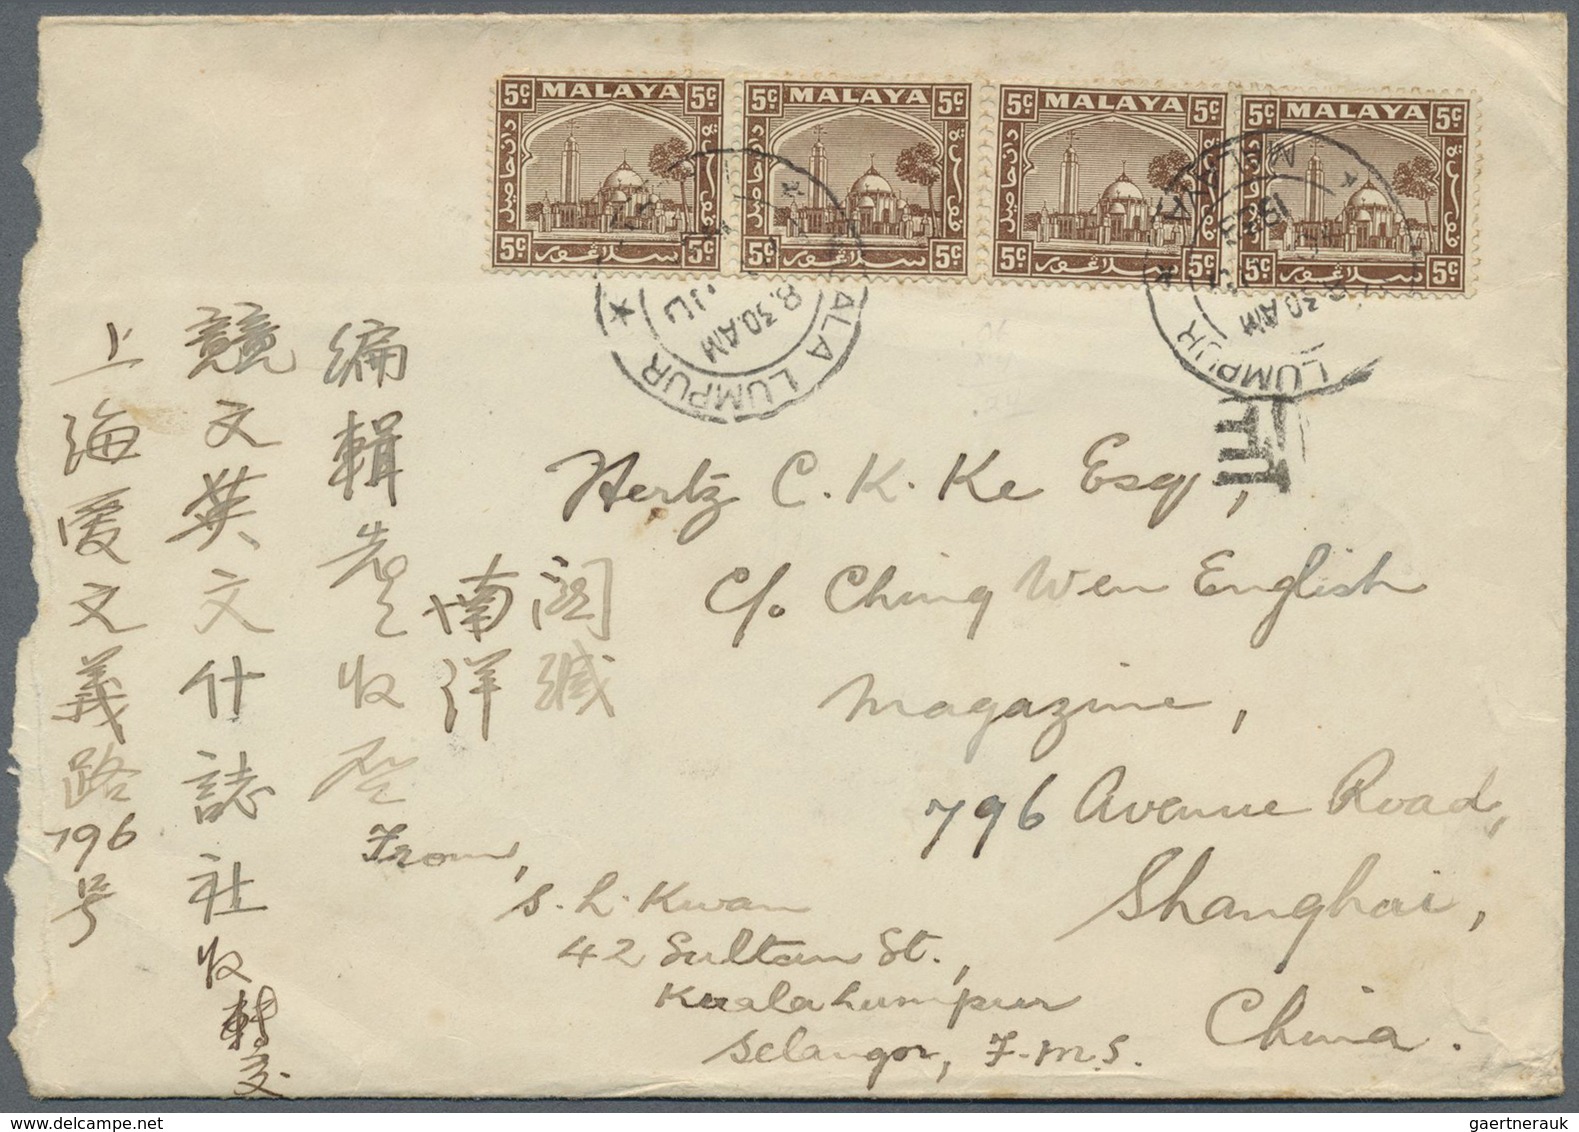 5c MALAYA 5c
5c سلاڠور 5c
5c MALAYA 5c
5c سلاڠور 5c
5c MALAYA 5c
5c سلاڠور 5c
5c MALAYA 5c
5c سلاڠور 5c
KUALA LUMPUR
8.30.AM
MALAYA
LUMPUR
30 AM
Hertz C. K. Ke Esq,
c/o Ching Wen English
Magazine,
796 Avenue Road,
Shanghai,
China.
From,
S. L. Kwan
42 Sultan St.,
Kuala Lumpur
Selangor, F.M.S.
上海爱文義路796号
競文英文什誌社收轉交
編輯先生收啓
南洋
緘
gaertnerauk